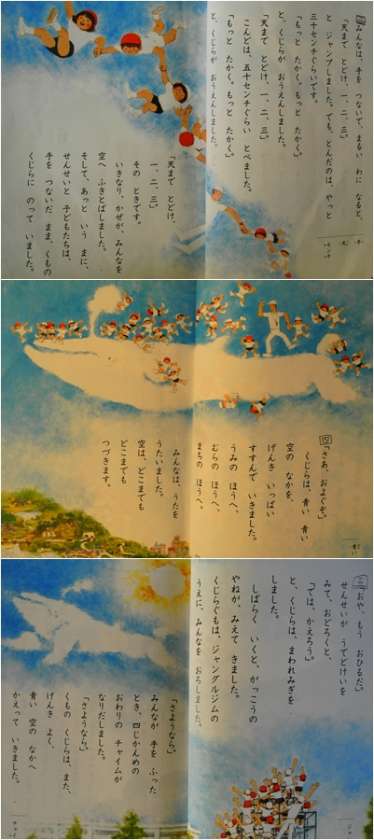 みんなは、手を つないで、まるい わに なると、
「天まで とどけ、一、二、三。」
と ジャンプしました。でも、とんだのは、やっと
三十センチぐらいです。
「もっと たかく。もっと たかく。」
と、くじらが おうえんしました。
「天まで とどけ、一、二、三。」
こんどは、五十センチぐらい とべました。
「もっと たかく。もっと たかく。」
と、くじらが おうえんしました。
「天まで とどけ、
一、二、三。」
その ときです。
いきなり、かぜが、みんなを
空へ ふきとばしました。
そして、あっと いう まに、
せんせいと 子どもたちは、
手を つないだ まま、くもの
くじらに のって いました。
四
「さあ、およぐぞ。」
くじらは、青い 青い
空の なかを、
げんき いっぱい
すすんで いきました。
うみの ほうへ、
むらの ほうへ、
まちの ほうへ。
みんなは、うたを
うたいました。
空は、どこまでも
どこまでも
つづきます。
「おや、もう おひるだ。」
せんせいが うでどけいを
みて、おどろくと、
「では、かえろう。」
と、くじらは、まわれみぎを
しました。
しばらく いくと、がっこうの
やねが、みえて きました。
くじらぐもは、ジャングルジムの
うえに、みんなを おろしました。
「さようなら。」
みんなが 手を ふった
とき、四じかんめの
おわりの チャイムが
なりだしました。
「さようなら。」
くもの くじらは、また、
げんき よく、
青い 空の なかへ
かえって いきました。